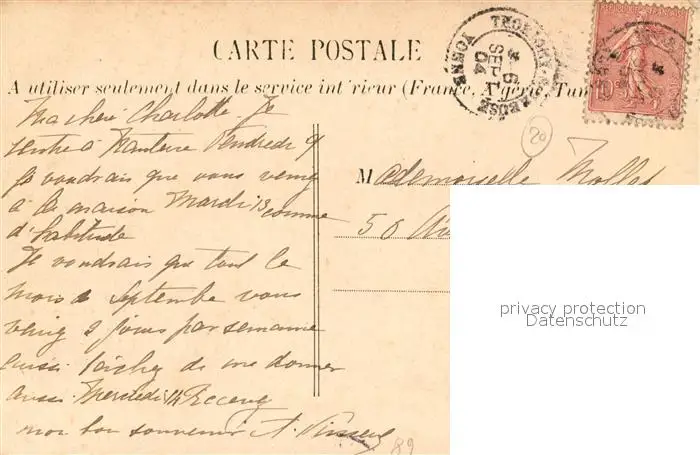 CARTE POSTALE
A utiliser seulement dans le service int'rieur (France, Algérie, Tun
Ma chère Charlotte Je
rentre à Nanterre Vendredi 9
Je voudrais que vous veniez
à la maison Mardi 13 comme
d'habitude
Je voudrais que tout le
mois de Septembre vous
veniez 2 jours par semaine
aussi tâchez de me donner
aussi Mercredi 14 Recevez
mon bon souvenir A.
Mademoiselle Mollet
50
20
89
YONNE
5
SEPT
04
10
privacy protection
Datenschutz